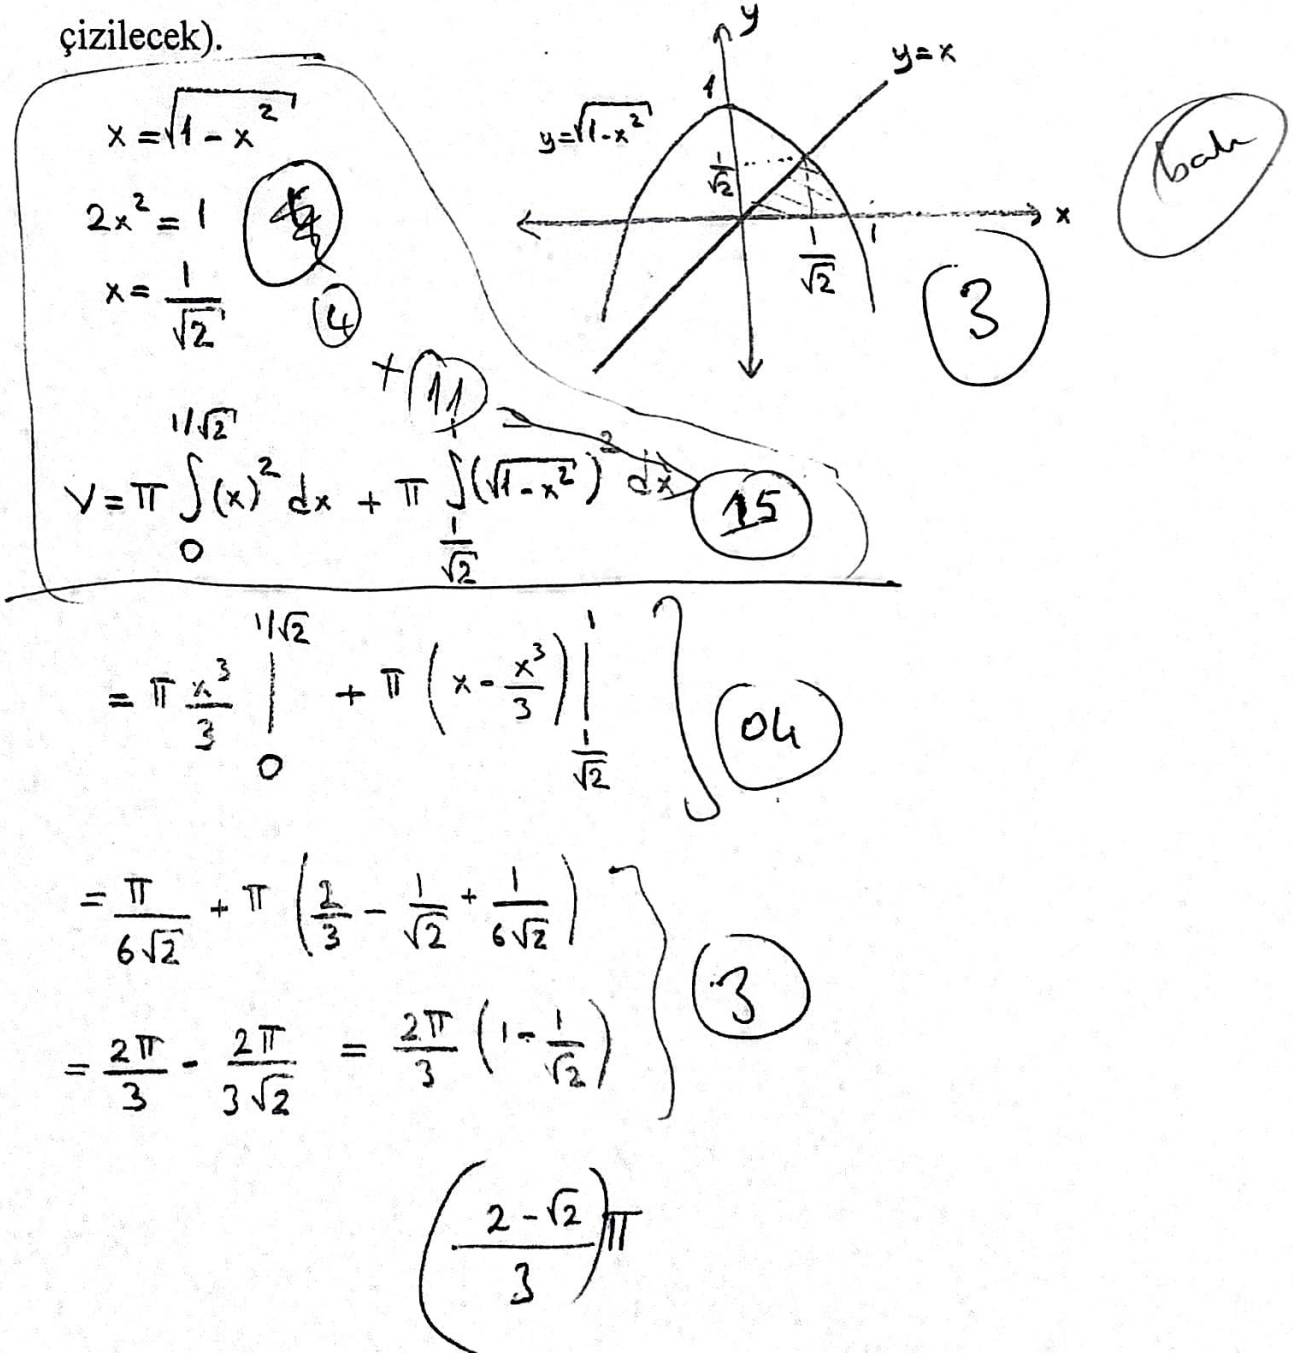 çizilecek).
x = √(1 - x²)
2x² = 1
x = 1/√2
4
+ 11
y
y = x
1
y = √(1-x²)
1/√2
x
1/√2
1
3
V = π ∫₀^(1/√2) (x)² dx + π ∫_(1/√2)^1 (√(1-x²))² dx
15
= π x³/3 |₀^(1/√2) + π (x - x³/3) |_(1/√2)^1
04
= π/(6√2) + π (2/3 - 1/√2 + 1/(6√2))
= 2π/3 - 2π/(3√2) = 2π/3 (1 - 1/√2)
3
((2 - √2)/3) π